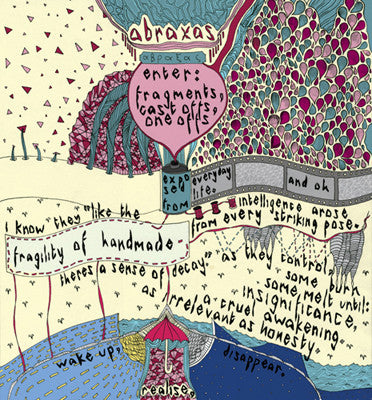 abraxas
αβραξας
enter:
fragments,
cast offs,
one offs
expo
sed
from
everyday
life.
and oh
intelligence arose
from every "striking pose.
I know "they "like the
fragility of handmade
theres a sense of decay." as they control,
some burn
some melt until:
insignificance,
a cruel awakening
as irrelevant as honesty.
wake up,
realise,
disappear.